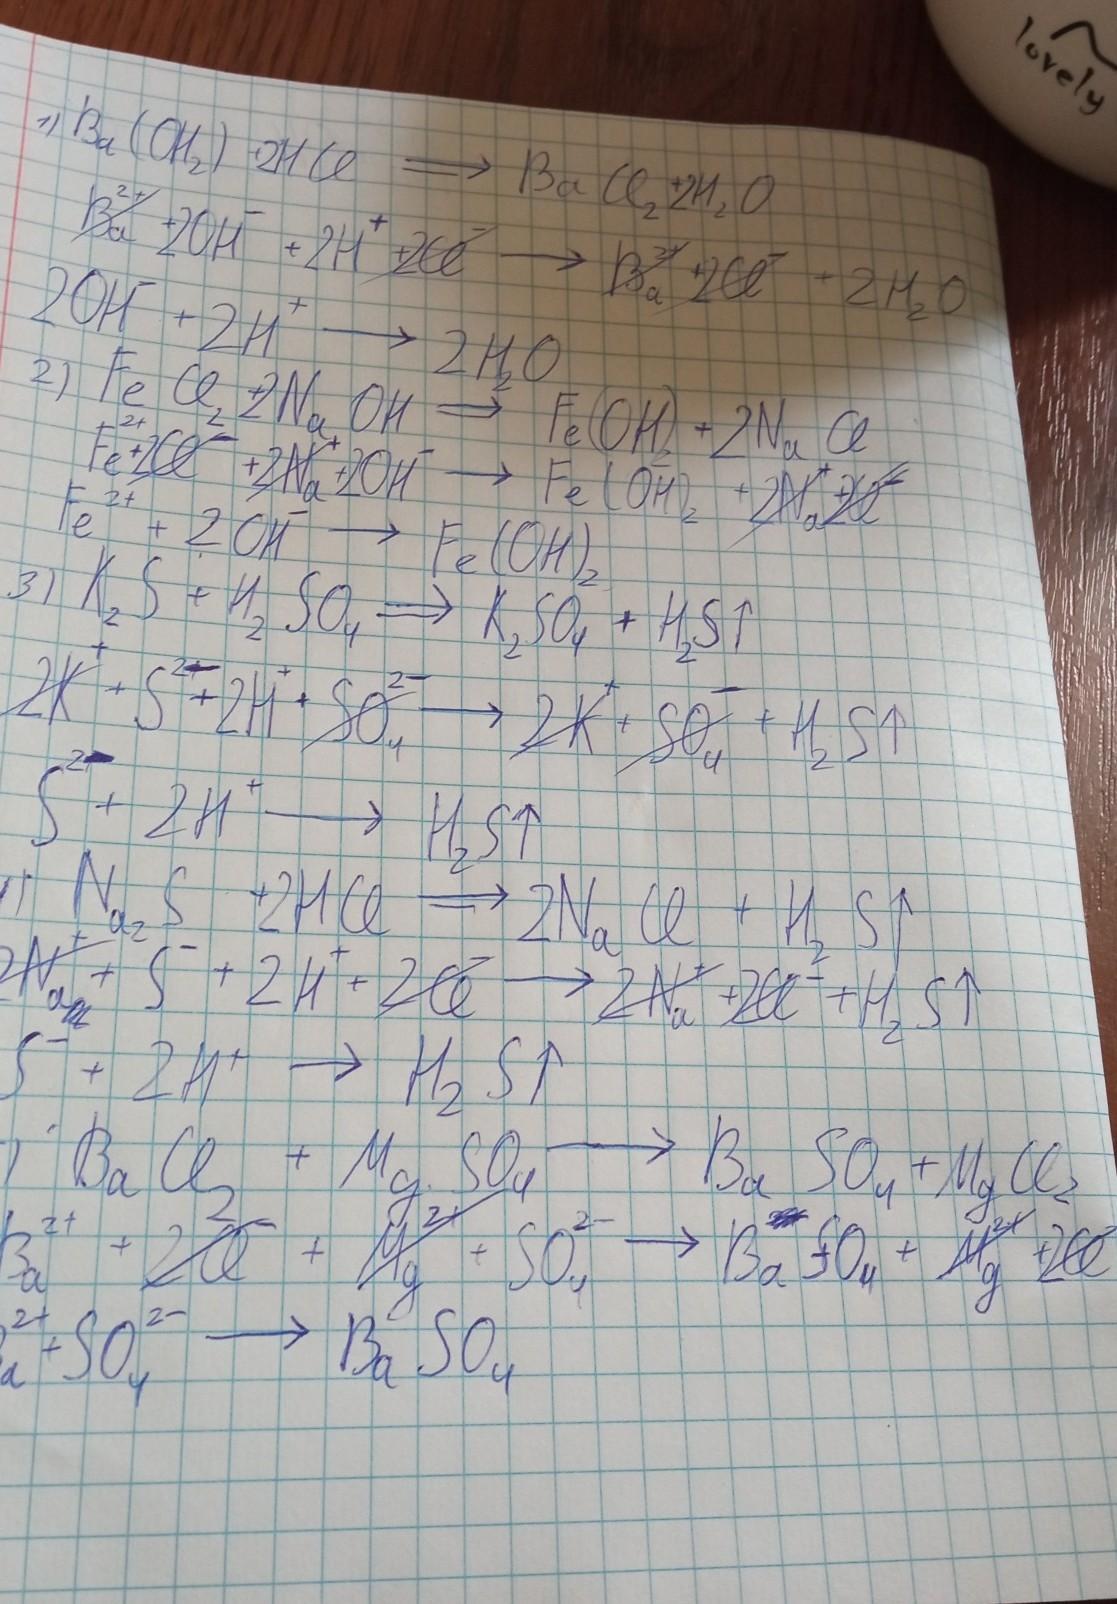 lovely
1) Ba(OH₂) + 2HCl ⟹ BaCl₂ + 2H₂O
Ba²⁺ + 2OH⁻ + 2H⁺ + 2Cl⁻ → Ba²⁺ + 2Cl⁻ + 2H₂O
2OH⁻ + 2H⁺ → 2H₂O
2) FeCl₂ + 2NaOH ⟹ Fe(OH)₂ + 2NaCl
Fe²⁺ + 2Cl⁻ + 2Na⁺ + 2OH⁻ → Fe(OH)₂ + 2Na⁺ + 2Cl⁻
Fe²⁺ + 2OH⁻ → Fe(OH)₂
3) K₂S + H₂SO₄ ⟹ K₂SO₄ + H₂S↑
2K⁺ + S²⁻ + 2H⁺ + SO₄²⁻ → 2K⁺ + SO₄⁻ + H₂S↑
S²⁻ + 2H⁺ → H₂S↑
) Na₂S + 2HCl ⟹ 2NaCl + H₂S↑
2Na⁺ + S⁻ + 2H⁺ + 2Cl⁻ → 2Na⁺ + 2Cl⁻ + H₂S↑
S⁻ + 2H⁺ → H₂S↑
) BaCl₂ + MgSO₄ → BaSO₄ + MgCl₂
Ba²⁺ + 2Cl⁻ + Mg²⁺ + SO₄²⁻ → BaSO₄ + Mg²⁺ + 2Cl
a²⁺ + SO₄²⁻ → BaSO₄